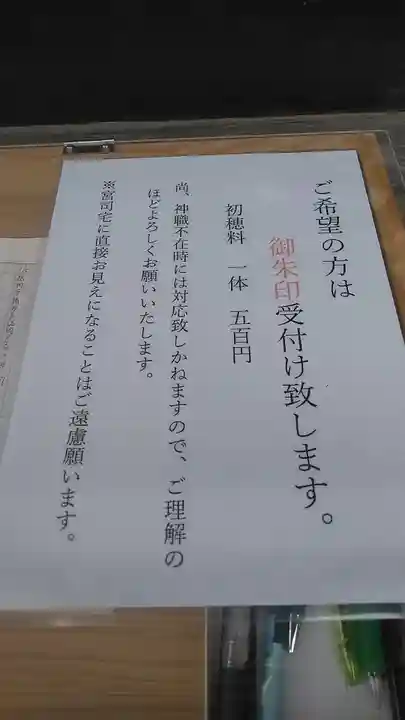 ご希望の方は
御朱印受付け致します。
初穂料　一体　五百円
尚、神職不在時には対応致しかねますので、ご理解の
ほどよろしくお願いいたします。
※宮司宅に直接お見えになることはご遠慮願います。